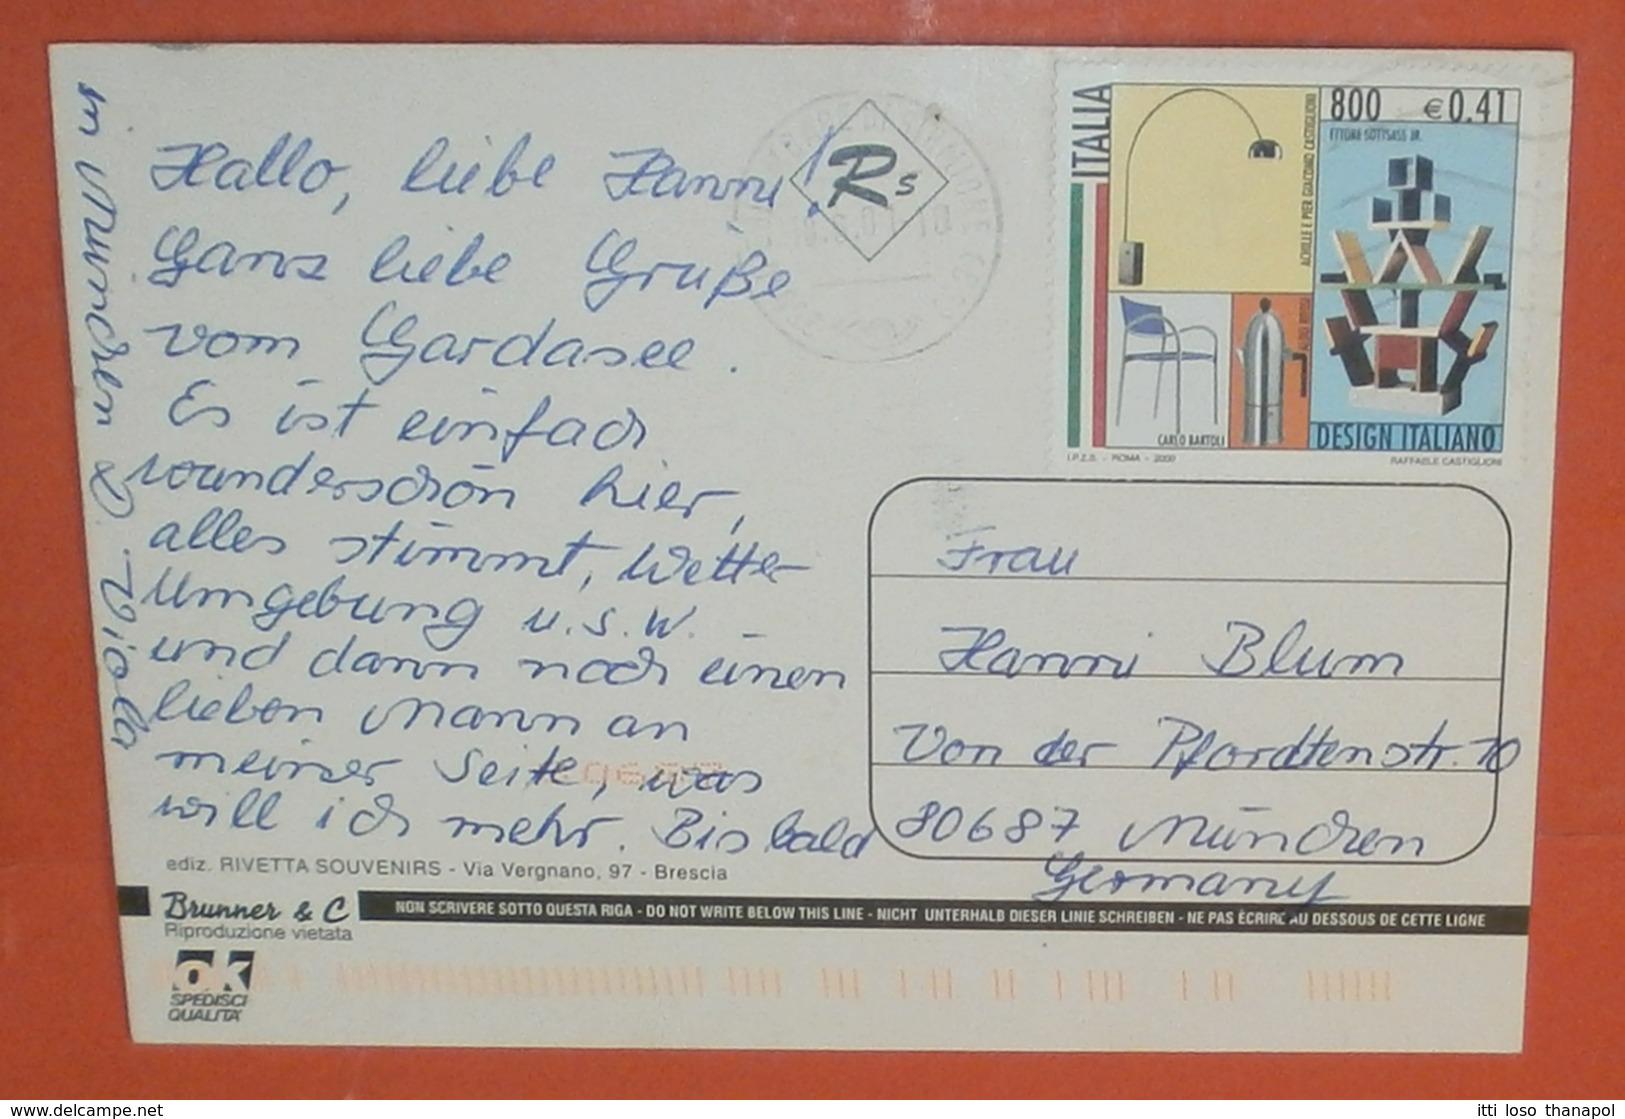 Hallo, liebe Hanni!
Ganz liebe Grüße
vom Gardasee.
Es ist einfach
wunderschön hier,
alles stimmt, Wetter
Umgebung u.s.w.
und dann noch einen
lieben Mann an
meiner Seite, was
will ich mehr. Bis bald
in München D. Viola
Rs
ITALIA
800 €0,41
ETTORE SOTTSASS JR.
ACHILLE E PIER GIACOMO CASTIGLIONI
CARLO BARTOLI
ALDO ROSSI
DESIGN ITALIANO
I.P.Z.S. - ROMA - 2000
RAFFAELE CASTIGLIONI
Frau
Hanni Blum
Von der Pfordtenstr. 10
80687 München
Germany
ediz. RIVETTA SOUVENIRS - Via Vergnano, 97 - Brescia
Brunner & C
Riproduzione vietata
NON SCRIVERE SOTTO QUESTA RIGA - DO NOT WRITE BELOW THIS LINE - NICHT UNTERHALB DIESER LINIE SCHREIBEN - NE PAS ÉCRIRE AU DESSOUS DE CETTE LIGNE
OK
SPEDISCI
QUALITA'
delcampe.net
itti loso thanapol